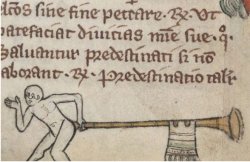 alios sine fine peccare. R. Ut
patefaciat divicias mīe sue. q°.
Saluantur predestinati si nō
laborant. R. Predestinatio tali